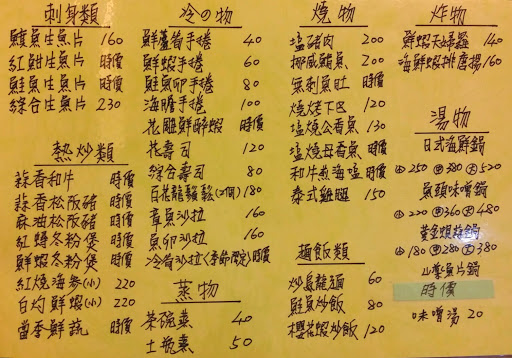 刺身類
鱝魚生魚片 160
紅魽生魚片 時價
鮭魚生魚片 時價
綜合生魚片 230
熱炒類
蒜香和牛 時價
蒜香松阪豬 時價
麻油松阪豬 時價
紅蟳冬粉煲 時價
鮮蝦冬粉煲 時價
紅燒海參(小) 220
白灼鮮蝦(小) 220
當季鮮蔬 時價
冷の物
鮮蘆筍手捲 40
鮮蝦手捲 60
鮭魚卵手捲 80
海膽手捲 100
花雕鮮醉蝦 時價
花壽司 120
綜合壽司 80
百花龍鬚鬆(2個) 180
章魚沙拉 160
魚卵沙拉 160
冷筍沙拉(季節限定)時價
蒸物
茶碗蒸 40
土瓶蒸 50
燒物
塩豬肉 200
挪威鯖魚 200
無刺魚肚 時價
燒烤下巴 120
塩燒公香魚 130
塩燒母香魚 時價
和牛煎海塩 時價
泰式雞腿 150
麵飯類
炒烏龍麵 60
鮭魚炒飯 80
櫻花蝦炒飯 120
炸物
鮮蝦天婦羅 140
海鮮蝦排唐揚 160
湯物
日式海鮮鍋
小250 中380 大520
魚頭味噌鍋
小220 中360 大480
黃金蜆蒜鍋
小180 中280 大380
山藥魚片鍋
時價
味噌湯 20